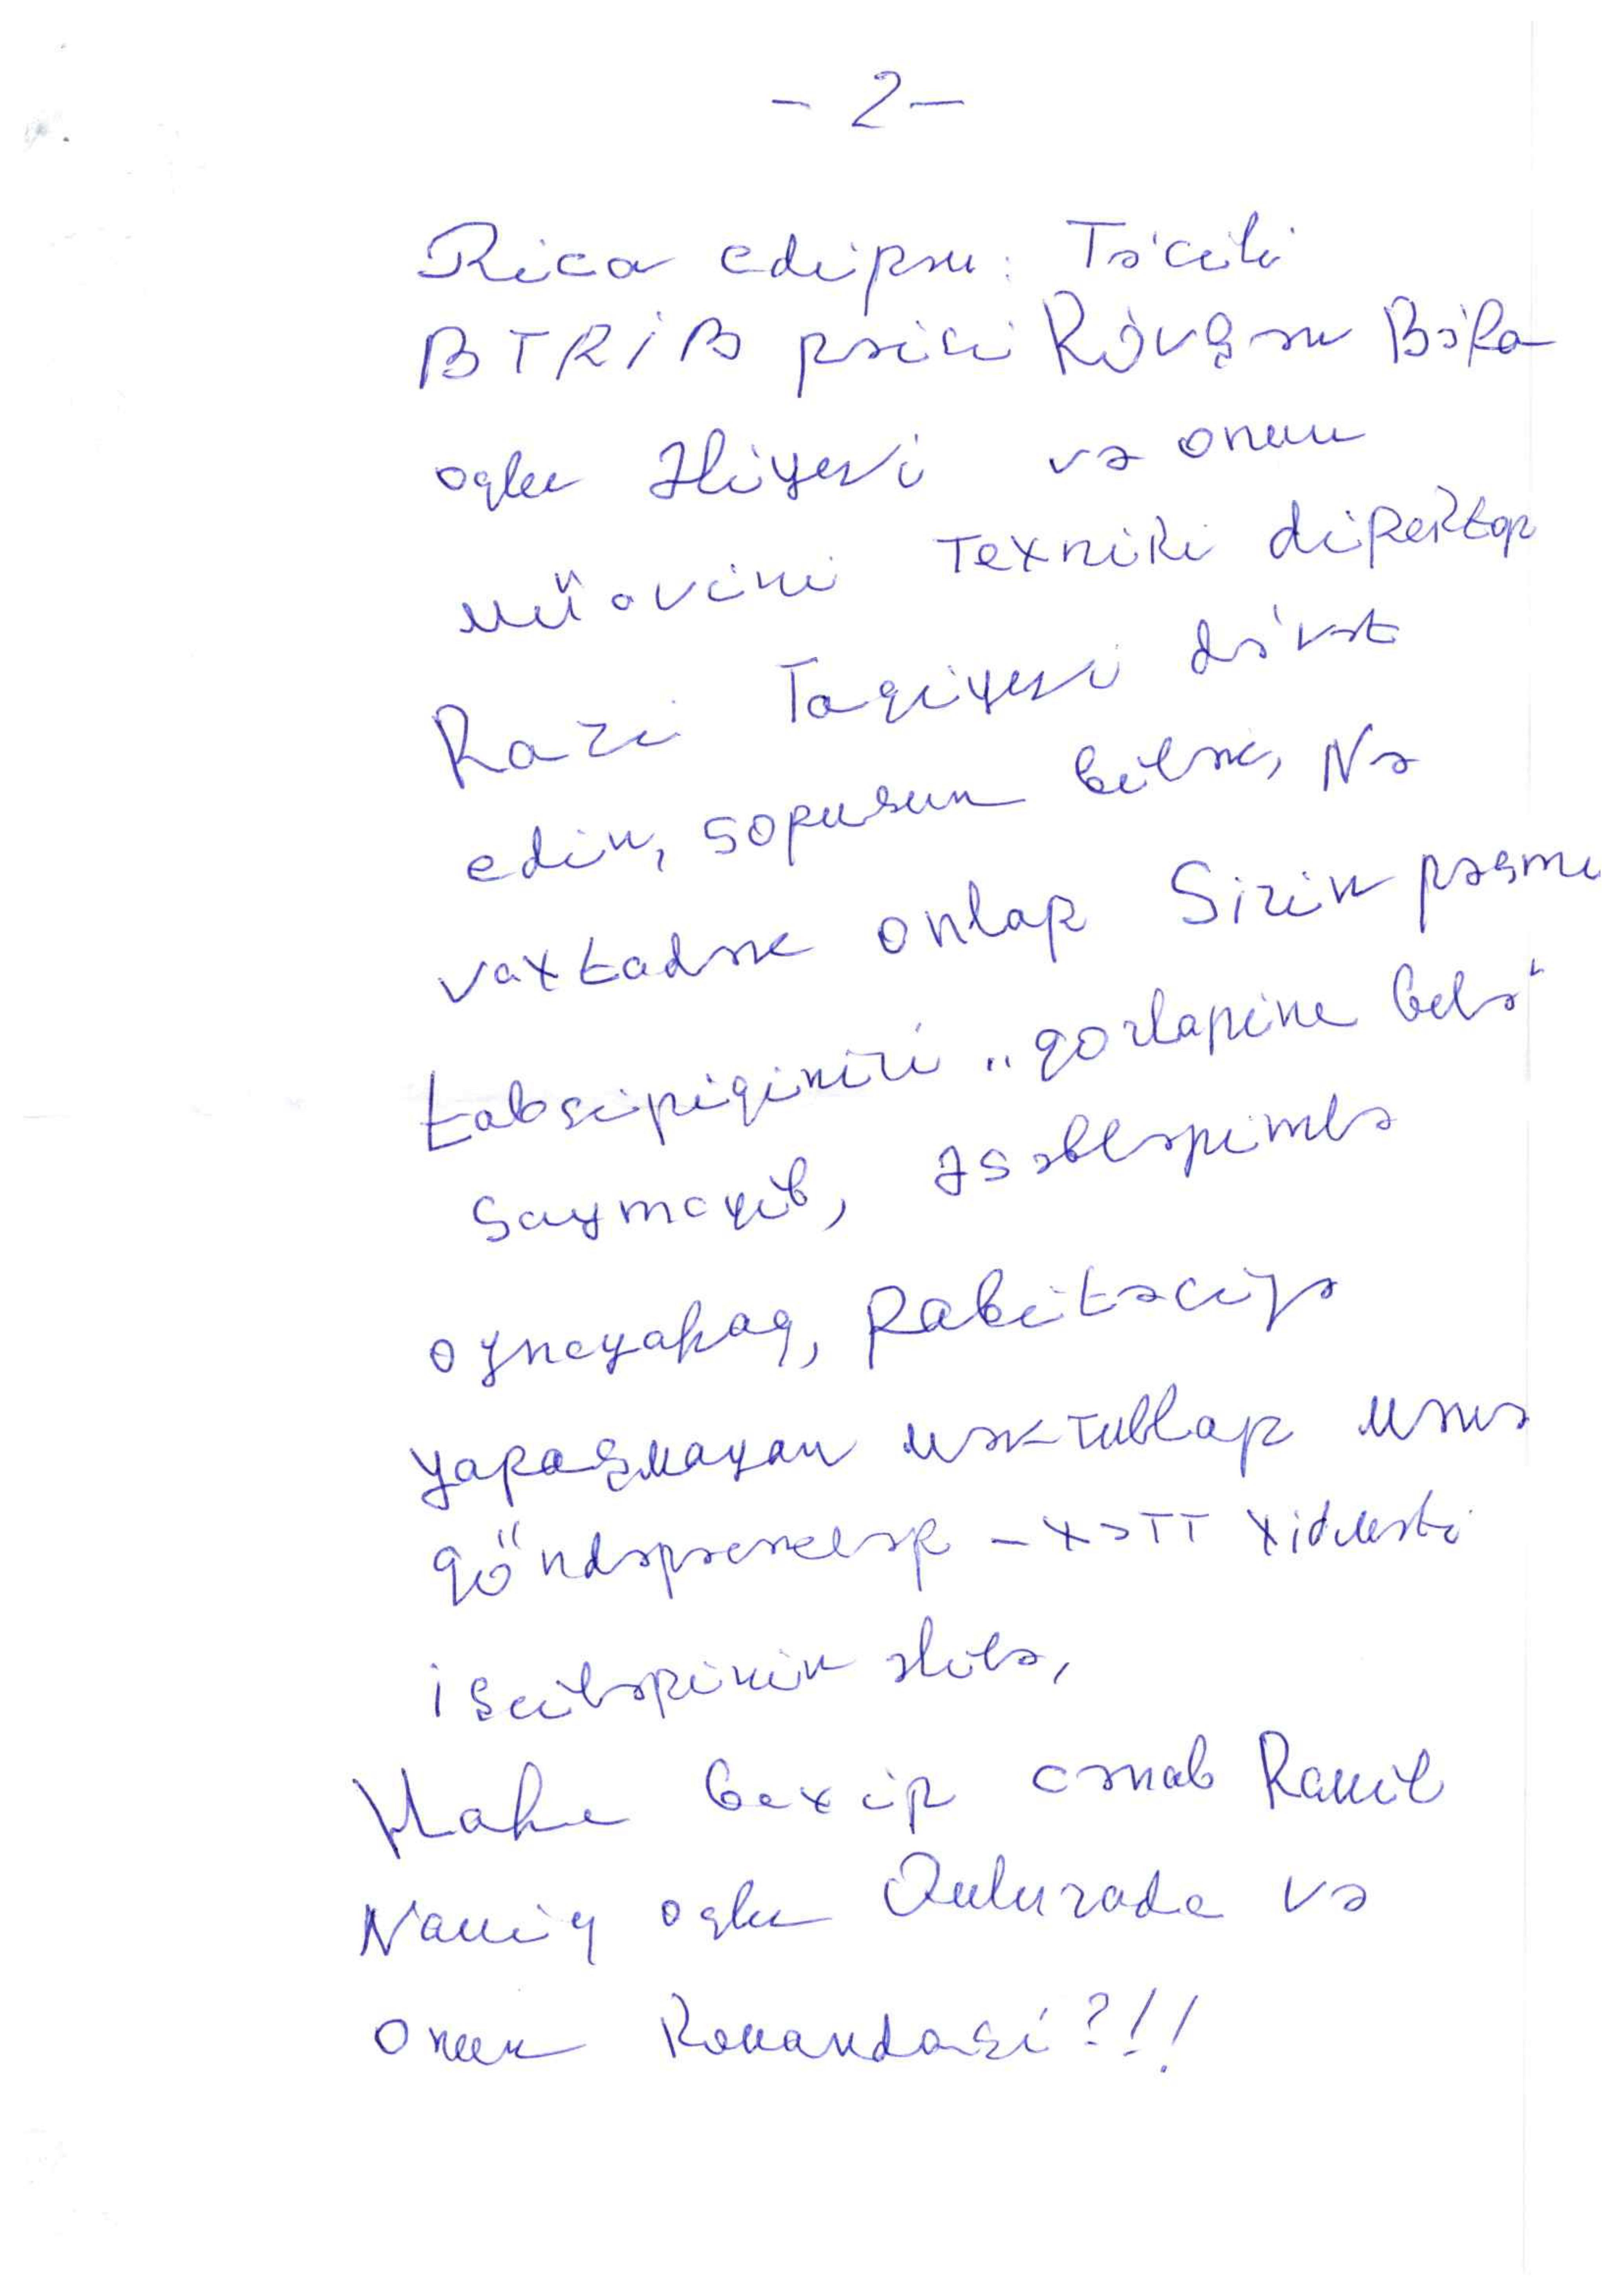 - 2 -
Rica edirəm: Tə'cili
BTRİB rəisi Rövşən BəRa
oğlu Əliyevi və onun
müavini Texniki direktor
Razi Tagiyevi də'vət
edin, soruşun bilək, Nə
vaxtadək onlar Sizin rəsmi
tabşiriginizi „gozlarina belə"
saymayib, əsəblərimlə
oynayaraq, Rabitəciyə
yaraşmayan məktublar mənə
göndərəcəklər - XƏTT xidməti
işçilərinin əlilə,
Hara baxir cənab Ramil
Namiq oglu Quluzada və
onun Komandasi?!!